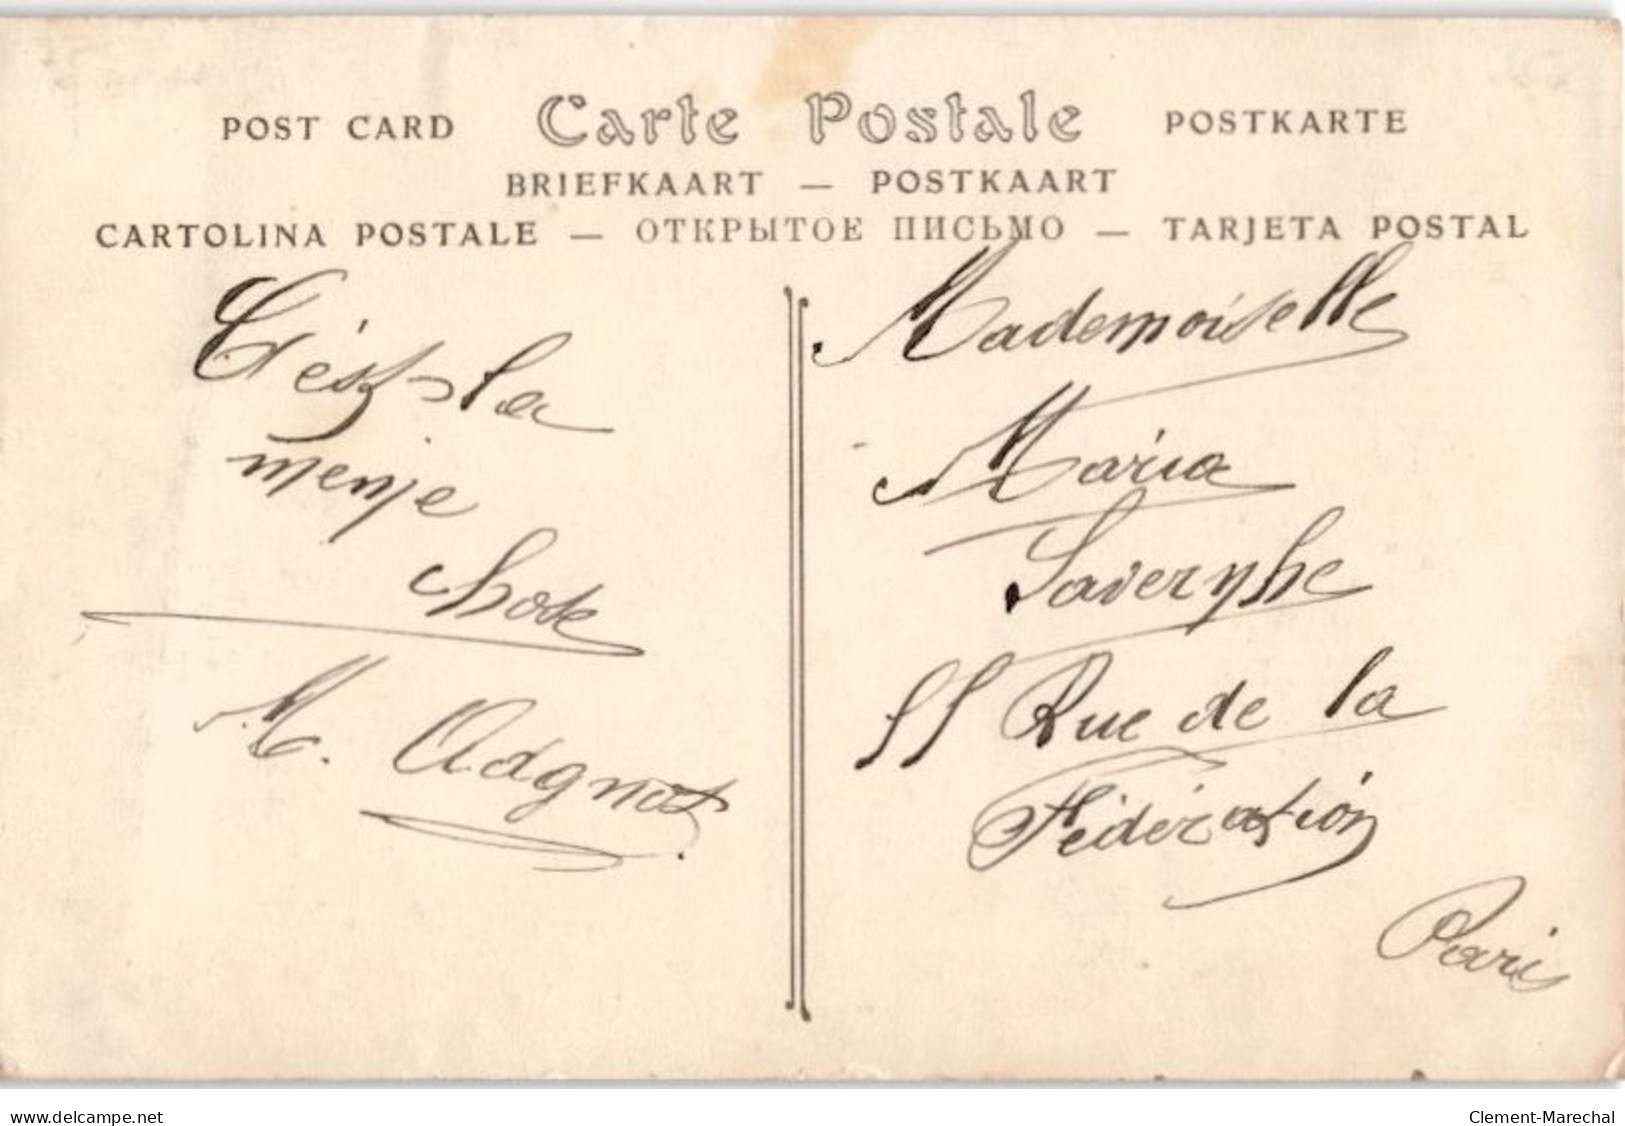 POST CARD Carte Postale POSTKARTE
BRIEFKAART — POSTKAART
CARTOLINA POSTALE — ОТКРЫТОЕ ПИСЬМО — TARJETA POSTAL
C'ést la
menje
chose
M. Adgnot
Mademoiselle
Maria
Lavernhe
55 Rue de la
Fédération
Paris
www.delcampe.net
Clement-Marechal